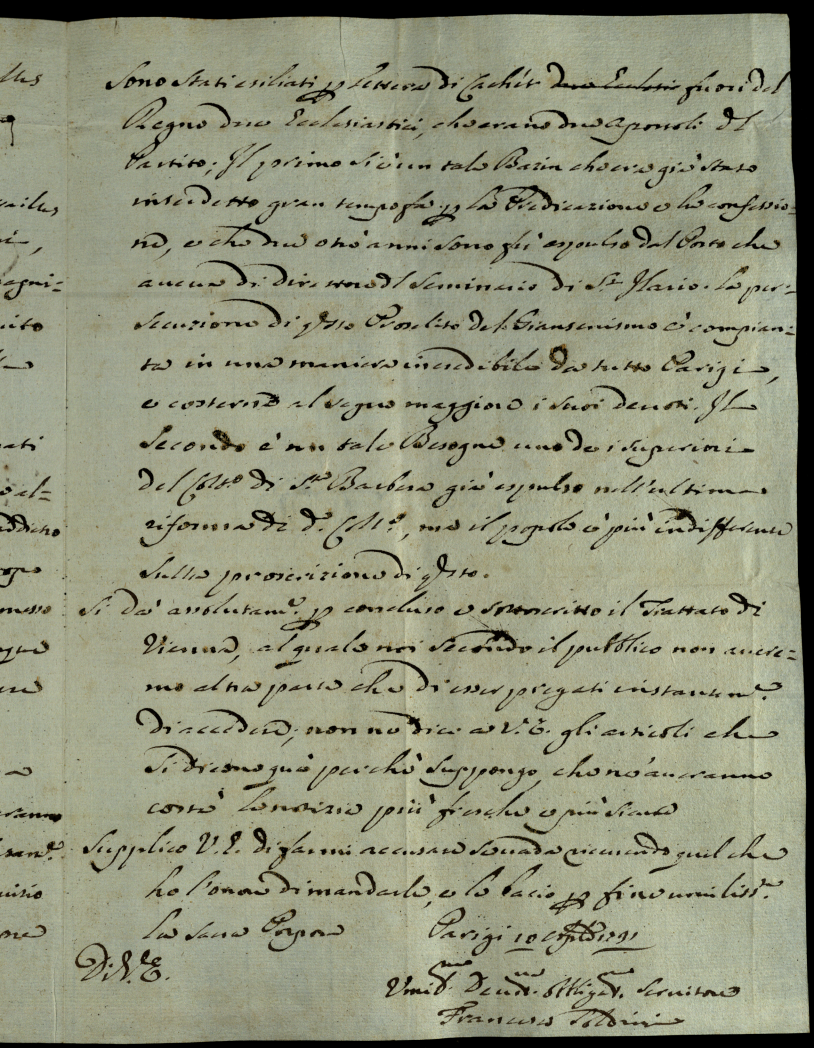 Sono stati esiliati p lettera di Cachét due Eclesia fuori del
Regno due Ecclesiastici, che erano due Apostoli del
Partito; Il primo si è un tale Bazin che era già stato
interdetto gran tempo fa p la Predicazione e le confessio=
ni, e che due o tre anni sono fù espulso dal Posto che
aueua di direttore del Seminario di S.t Ilario. la per=
secuzione di qsto Proselito del Giansenismo è compian=
ta in una maniera incredibile da tutto Parigi,
e costerna al segno maggiore i suoi deuoti. Il
Secondo è un tale Besogne uno de i superiori
del Coll.o di S.ta Barbera già espulso nell'ultima
riforma di d.o Coll.o, ma il popolo è più indifferente
sulla proscrizione di qsto.
Si dà assolutam.te p concluso e sottoscritto il Trattato di
Vienna, al quale noi secondo il pubblico non aure=
mo altra parte che di esser pregati instantem.te
di accedere; non ne dico a V.E. gli articoli che
si dicono quà perchè suppongo, che ne aueranno
costà le notizie più fresche e più sicure
Supplico V.E. di farmi accusare se uada riceuendo quel che
ho l'onore di mandarle, e le bacio p fine umiliss.te
la sacra Porpora
Parigi 10
Di V.E.
Umil.mo Deuot.mo Obligat.mo Seruitore
Francesco
llus
uito
ati
al=
messo
one